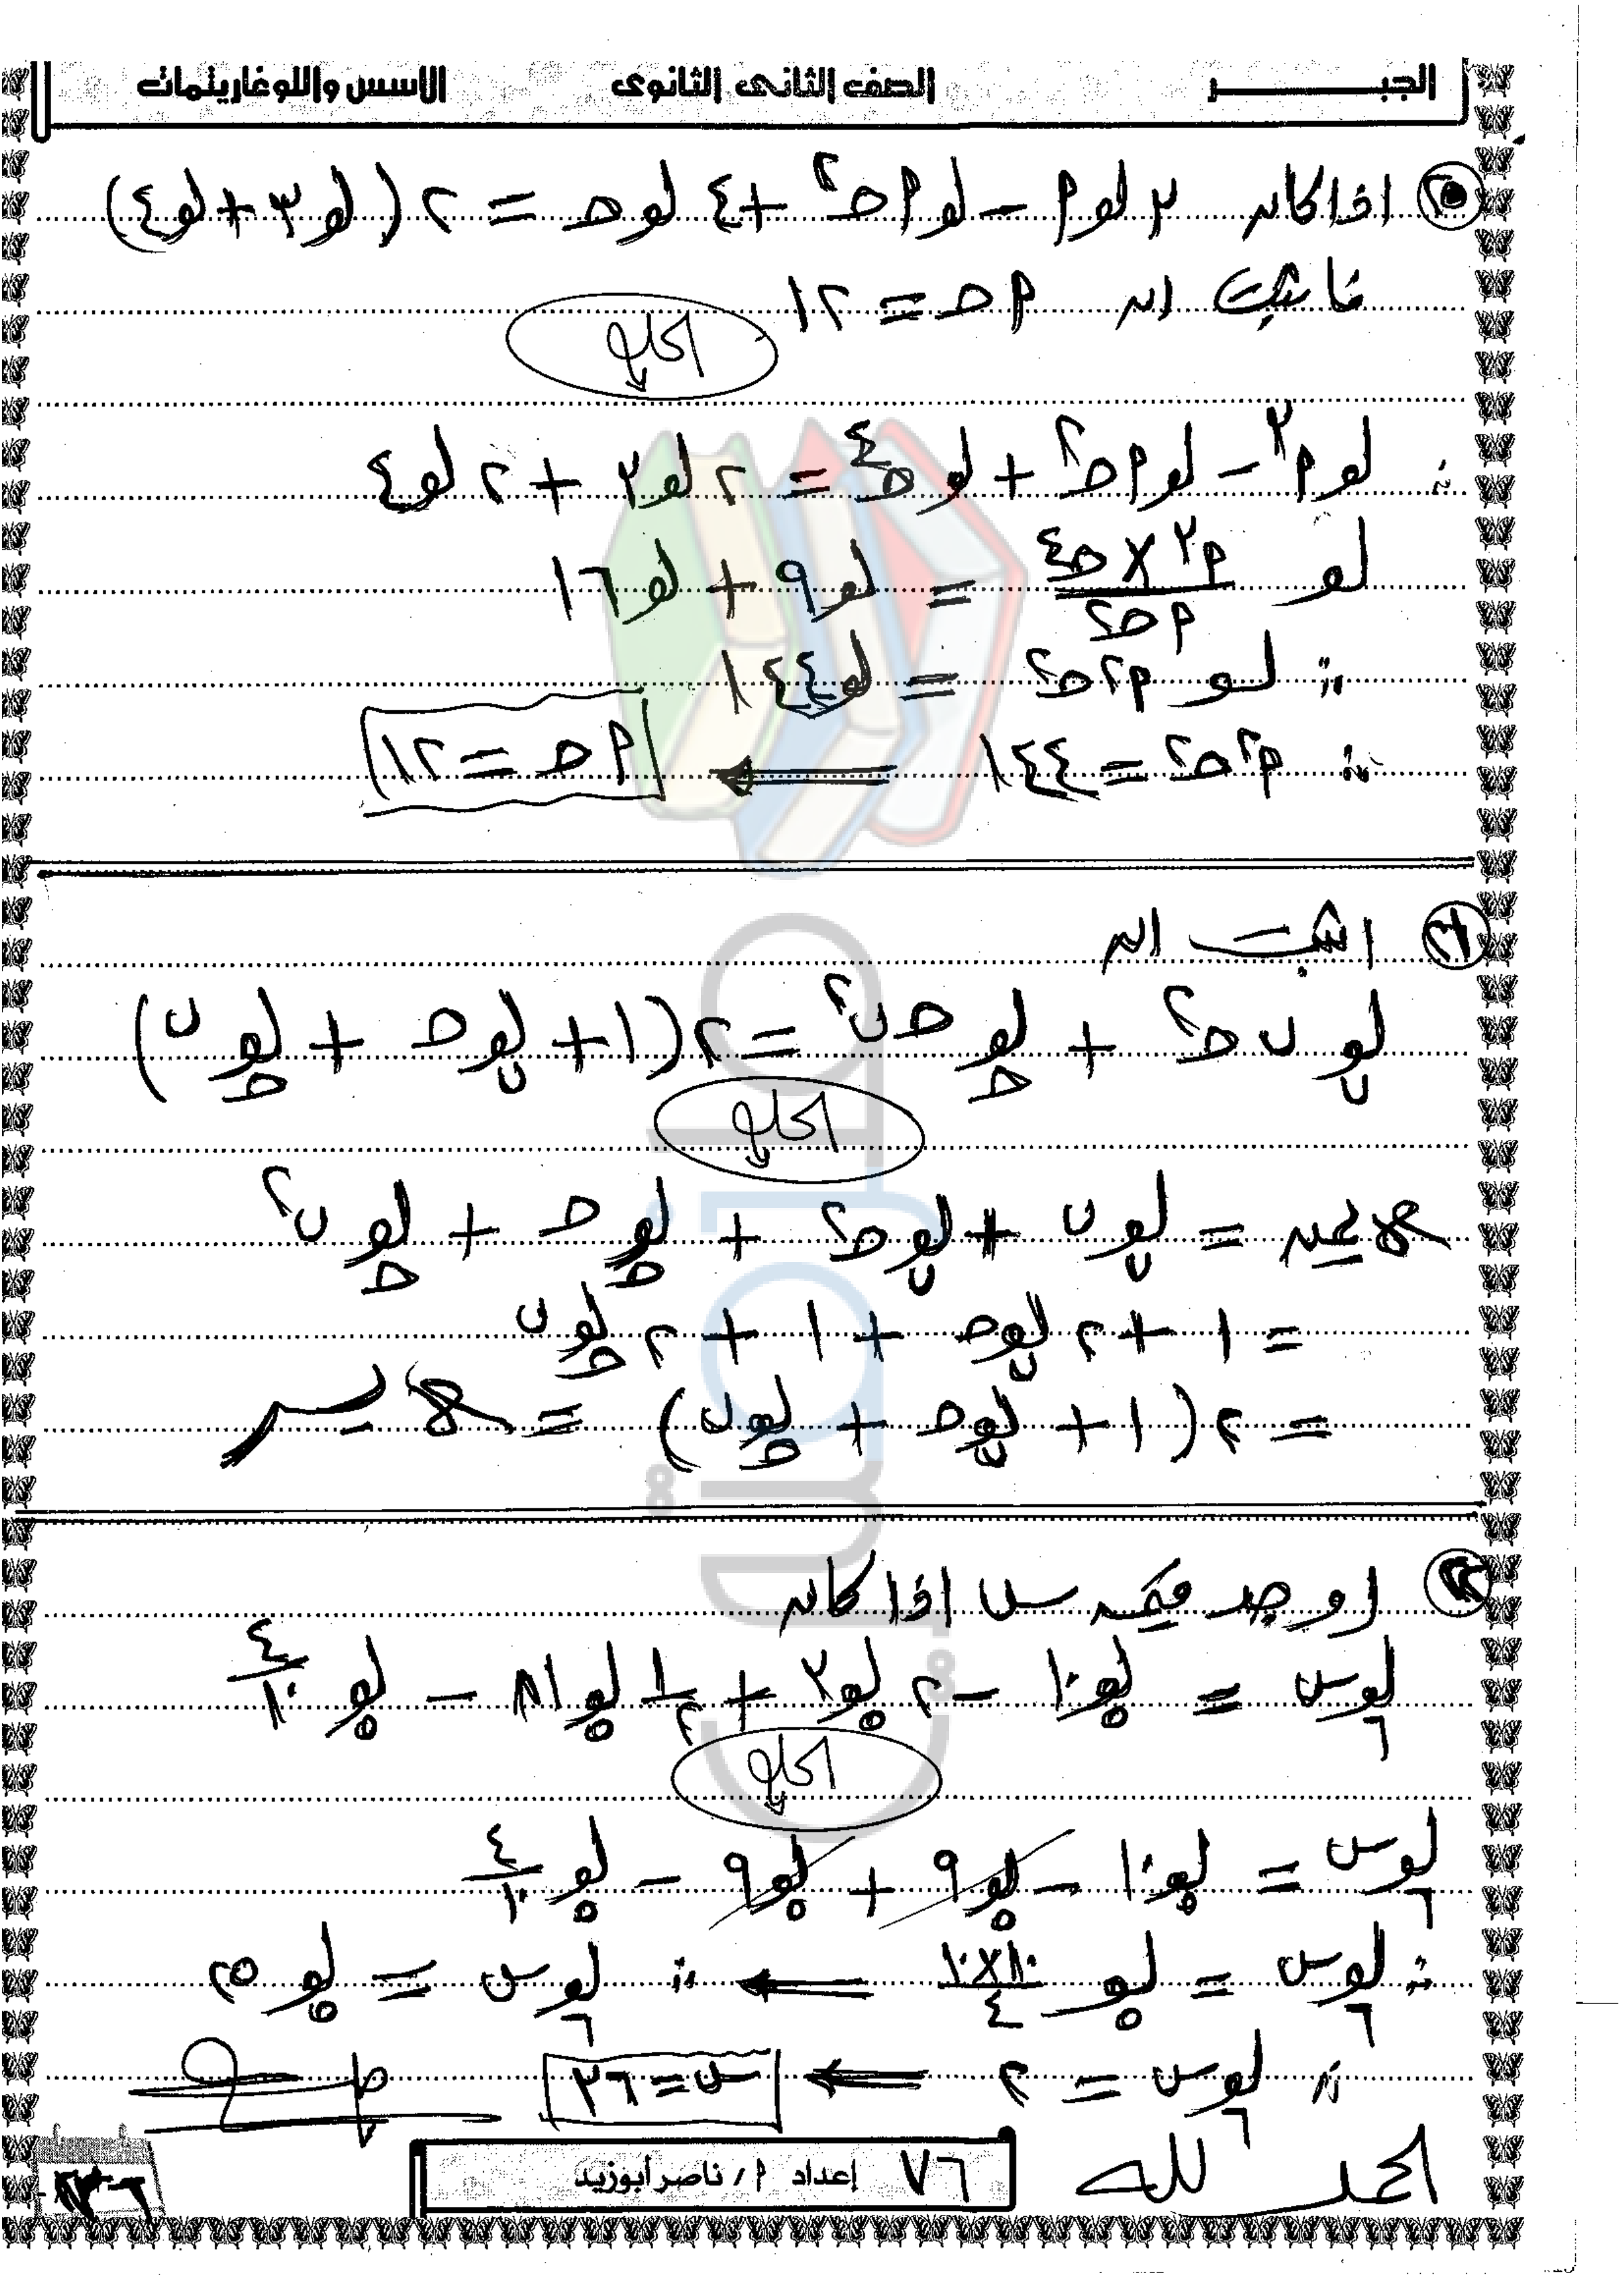 الجبـــــر الصف الثانى الثانوى الاسس واللوغاريتمات
٢٥ اذا كان ٣ لو م − لو م حـ^٢ + ٤ لو حـ = ٢ ( لو ٣ + لو ٤ )
فاثبت ان م حـ = ١٢
الحل
∴ لو م^٣ − لو م حـ^٢ + لو حـ^٤ = ٢ لو ٣ + ٢ لو ٤
لو (م^٣ × حـ^٤)/(م حـ^٢) = لو ٩ + لو ١٦
∴ لو م^٢ حـ^٢ = لو ١٤٤
∴ م^٢ حـ^٢ = ١٤٤ ⟸ م حـ = ١٢
٢٦ اثبت ان
لو_ن ن حـ^٢ + لو_حـ حـ ن^٢ = ٢ ( ١ + لو_ن حـ + لو_حـ ن )
الحل
الايمن = لو_ن ن + لو_ن حـ^٢ + لو_حـ حـ + لو_حـ ن^٢
= ١ + ٢ لو_ن حـ + ١ + ٢ لو_حـ ن
= ٢ ( ١ + لو_ن حـ + لو_حـ ن ) = الايسر
اوجد قيمه س اذا كان
لو_٦ س = لو_٥ ١٠ − ٢ لو_٥ ٣ + ١/٢ لو_٥ ٨١ − لو_٥ ٤/١٠
الحل
لو_٦ س = لو_٥ ١٠ − لو_٥ ٩ + لو_٥ ٩ − لو_٥ ٤/١٠
∴ لو_٦ س = لو_٥ (١٠×١٠)/٤ ⟸ ∴ لو_٦ س = لو_٥ ٢٥
∴ لو_٦ س = ٢ ⟸ س = ٣٦
الحمد لله
٧٦ إعداد م/ ناصر أبوزيد